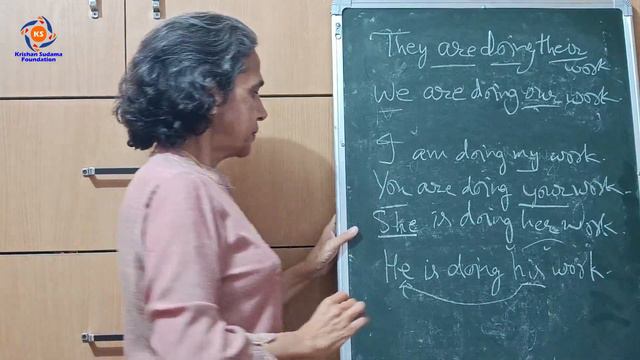 KS
Krishan Sudama
Foundation
They are doing their
work
We are doing our work
I am doing my work.
You are doing your work.
She is doing her work.
He is doing his work.